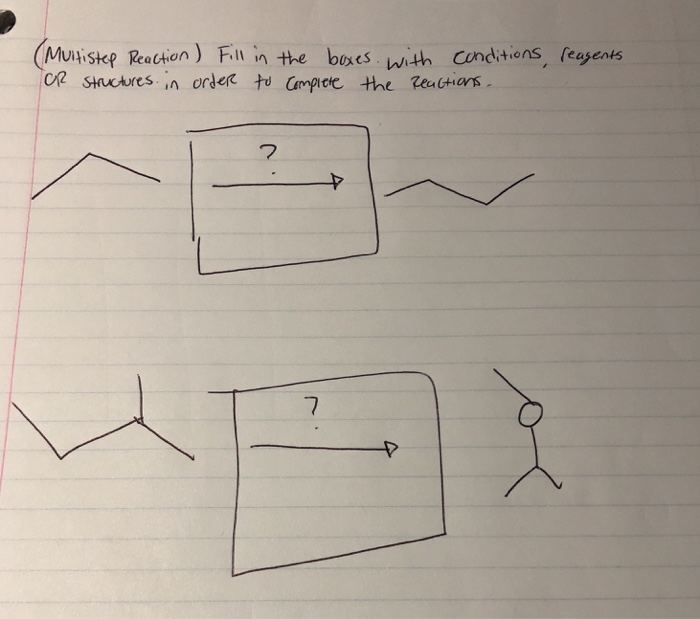 (Multistep Reaction) Fill in the boxes with conditions, reagents
OR structures in order to complete the reactions.
?
?